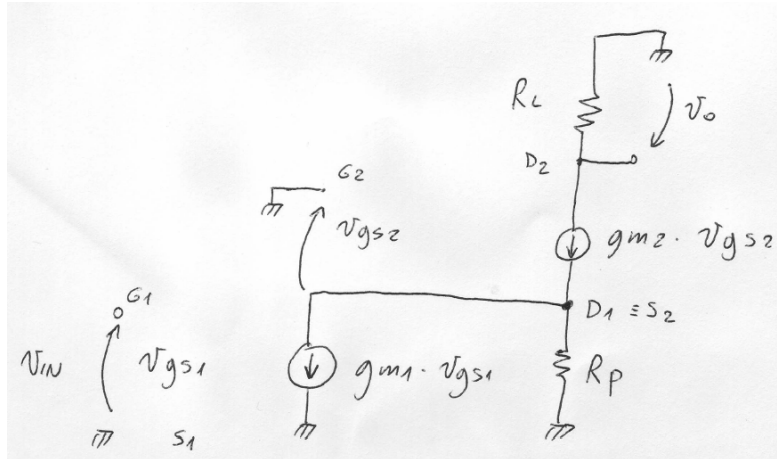 RL
vo
D2
G2
vgs2
gm2 · vgs2
G1
D1 ≡ S2
vIN
vgs1
gm1 · vgs1
Rp
S1